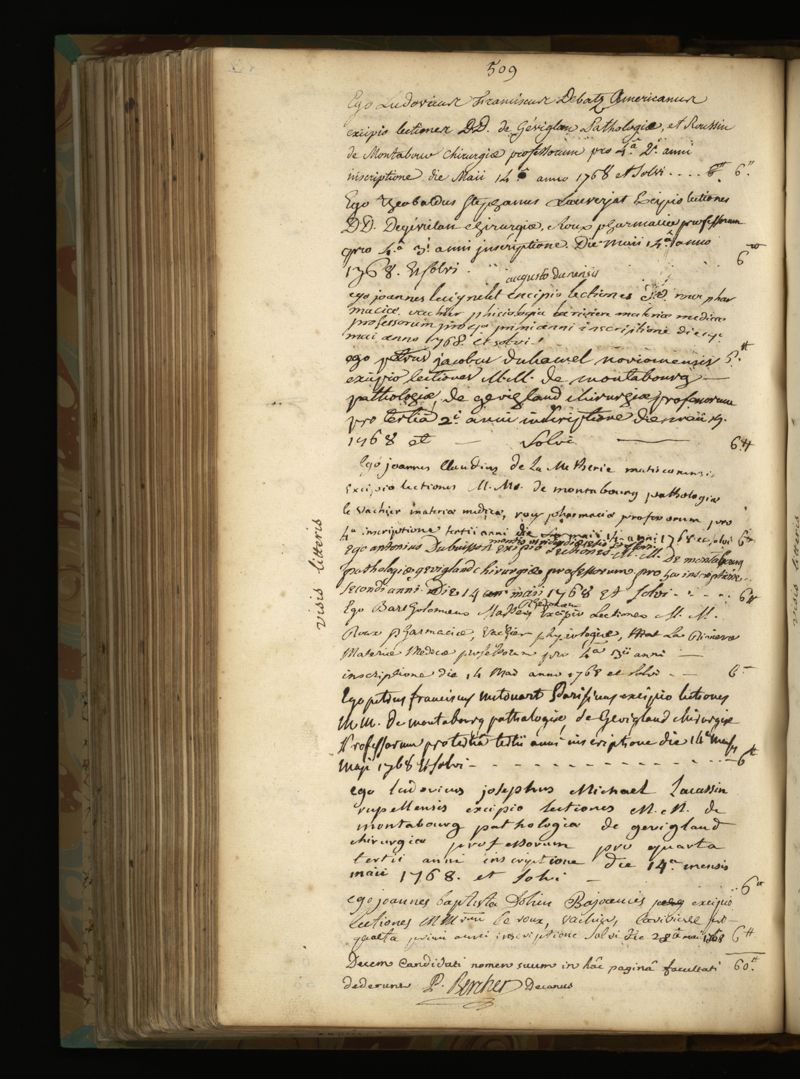 509
Ego Ludovicus Franciscus Debatz Americanus
excipio lectiones DD. de Gévigland Pathologiæ, et Roussin
de Montabourg Chirurgiæ professorum pro 4.â 2.i anni
inscriptione die Maii 14 â anno 1768 et solvi .... 6.tt
Ego Theobaldus Stephanus Lauverjat Excipio lectiones
DD. Degévilan chirurgiæ, Roux pharmaciæ professorum
pro 4.â 3.i anni inscriptione. Die maii 14.â anno
1768. Et solvi 6
augusto dunensis
ego joannes excipio lectiones D.D. roux phar
maciæ, vachier phisiologiæ materiæ medicæ
professorum pro primi anni inscriptione die
maii anno 1768. et solvi
ego petrus jacobus duhamel noviomensis
excipio lectiones M.M. de montabourg
pathologiæ, de gevigland chirurgiæ professorum
pro tertiâ 2.i anni inscriptione die maii 14.
1768 et — solvi — 6.tt
Ego joannes Claudius de La Metherie
Excipio lectiones M. M. de montabourg pathologiæ
le vachier materiæ medicæ, roux pharmaciæ professorum pro
4.a inscriptione tertii anni die 14 anni 1768 et solvi 6tt
ego antonius Dubuisson excipio Lectiones M. M. De montabourg
pathologiæ gevigland chirurgiæ professorum pro inscriptione
secundi anni. Die 14 maii 1768 Et solvi - - - 6tt
Ego Bartholomeus Excipio Lectiones M. M.
Roux pharmaciæ, Vachier physiologiæ, La Riviere
Materiæ Medicæ professorum pro 4.â anni —
inscriptione die 14 Maii anno 1768 et solvi - - 6
Ego petrus franciscus mitouart Parisinus excipio lectiones
M.M. de montabourg pathologiæ, de Gevigland chirurgiæ
Professorum pro tertiâ tertii anni inscriptione die 14.a mensis
Maji 1768 Et solvi - - - - - 6tt
ego ludovicus josephus Michael Lacassin
rupellensis excipio lectiones M. M. de
montabourg pathologiæ de gevigland
chirurgiæ professorum pro quarta
tertii anni inscriptione die 14.a mensis
maii 1768. et solvi — 6
ego joannes baptista Bajocensis excipio
lectiones MM le roux, vachier, pro
quarta primi anni inscriptione solvi die 28 maii 1768 6tt
Decem Candidati nomen suum in hâc paginâ facultati 60.tt
dederunt P. Bercher Decanus
visis litteris